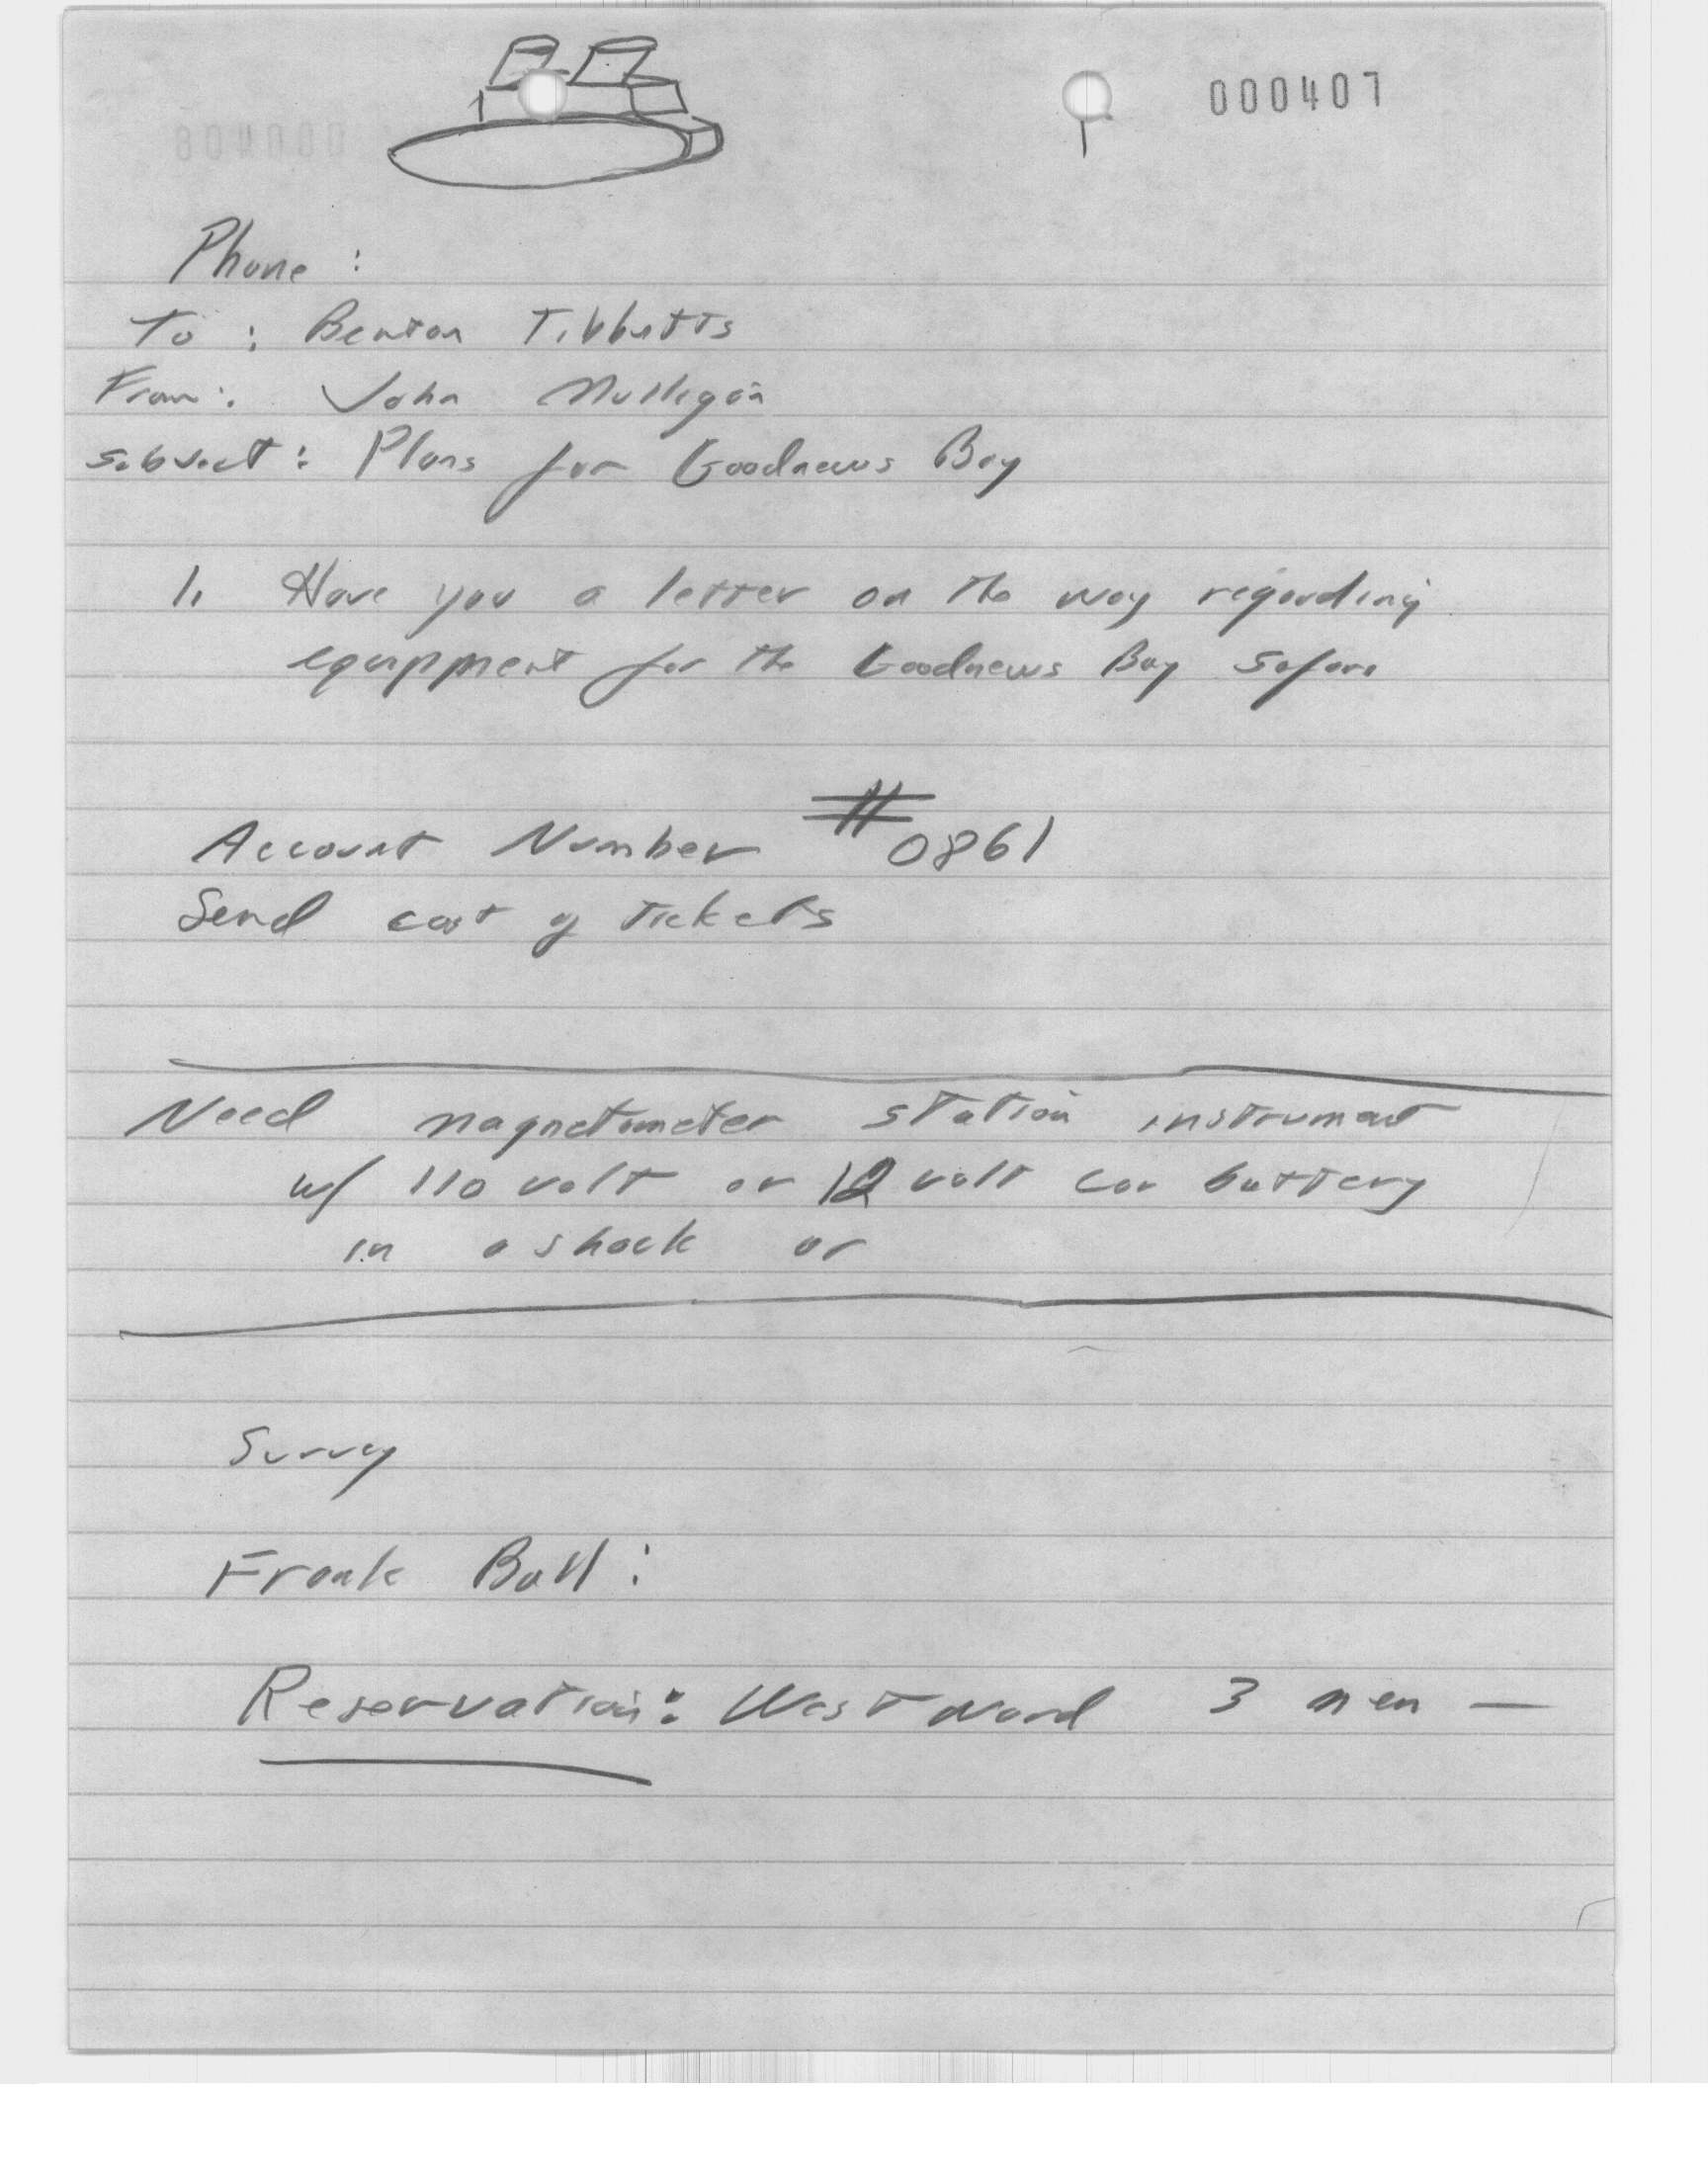 000407
Phone :
To : Benton Tibbetts
From : John Mulligan
Subject : Plans for Goodnews Bay
1. Have you a letter on the way regarding
equippment for the Goodnews Bay Safari
Account Number # 0861
Send cost of Tickets
Need magnetometer station instrument
w/ 110 volt or 12 volt car battery
in a shack or
Survey
Frank Ball :
Reservation : Westward 3 men —